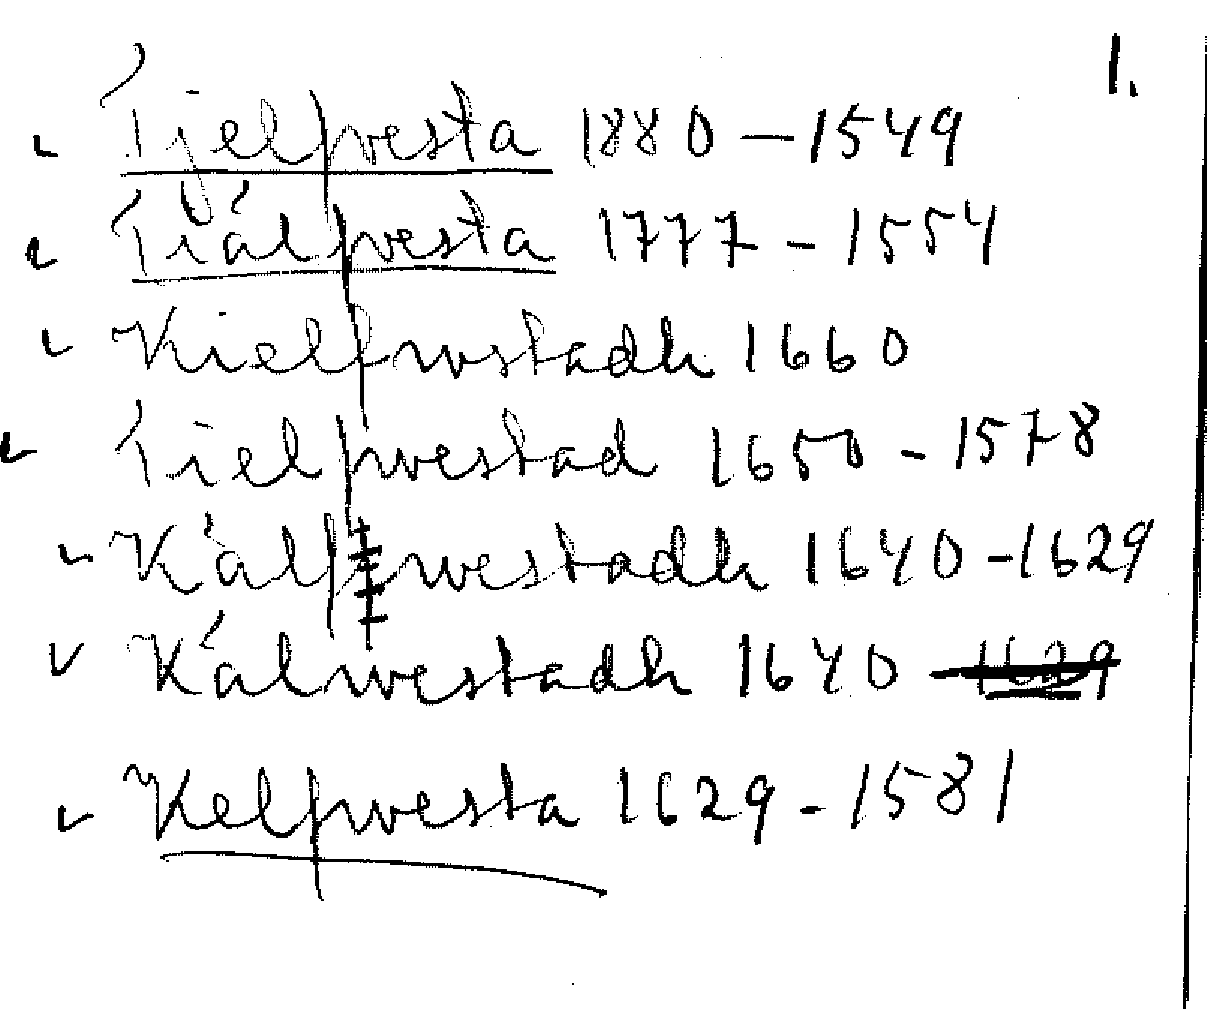 1.
Tjelfvesta 1880 – 1549
Tiälfvesta 1777 - 1554
Kielfwstadh 1660
Tielfwestad 1650 - 1578
Kälfwestadh 1640 - 1629
Kälwestadh 1640 - 1629
Kelfwesta 1629 - 1581